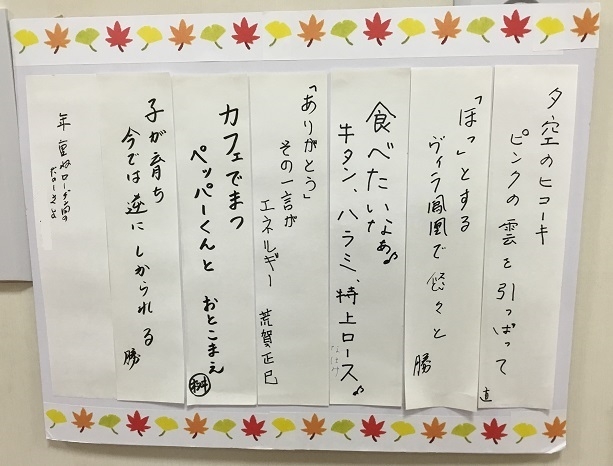 夕空のヒコーキ
ピンクの雲を引っぱって
直
「ほっ」とする
ヴィラ鳳凰で悠々と
勝
食べたいなぁ♪
牛タン、ハラミ、特上ロース♪
「ありがとう」
その一言が
エネルギー
荒賀正巳
カフェでまつ
ペッパーくんと おとこまえ
子が育ち
今では逆にしかられる
勝
年重ね